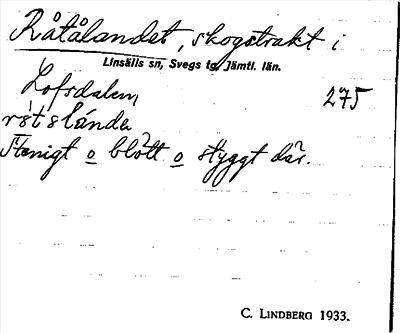 Råtålandet, skogstrakt i
Linsälls sn, Svegs tg, Jämtl. län.
Lofsdalen, 275
Stenigt o blött o styggt där.
C. LINDBERG 1933.